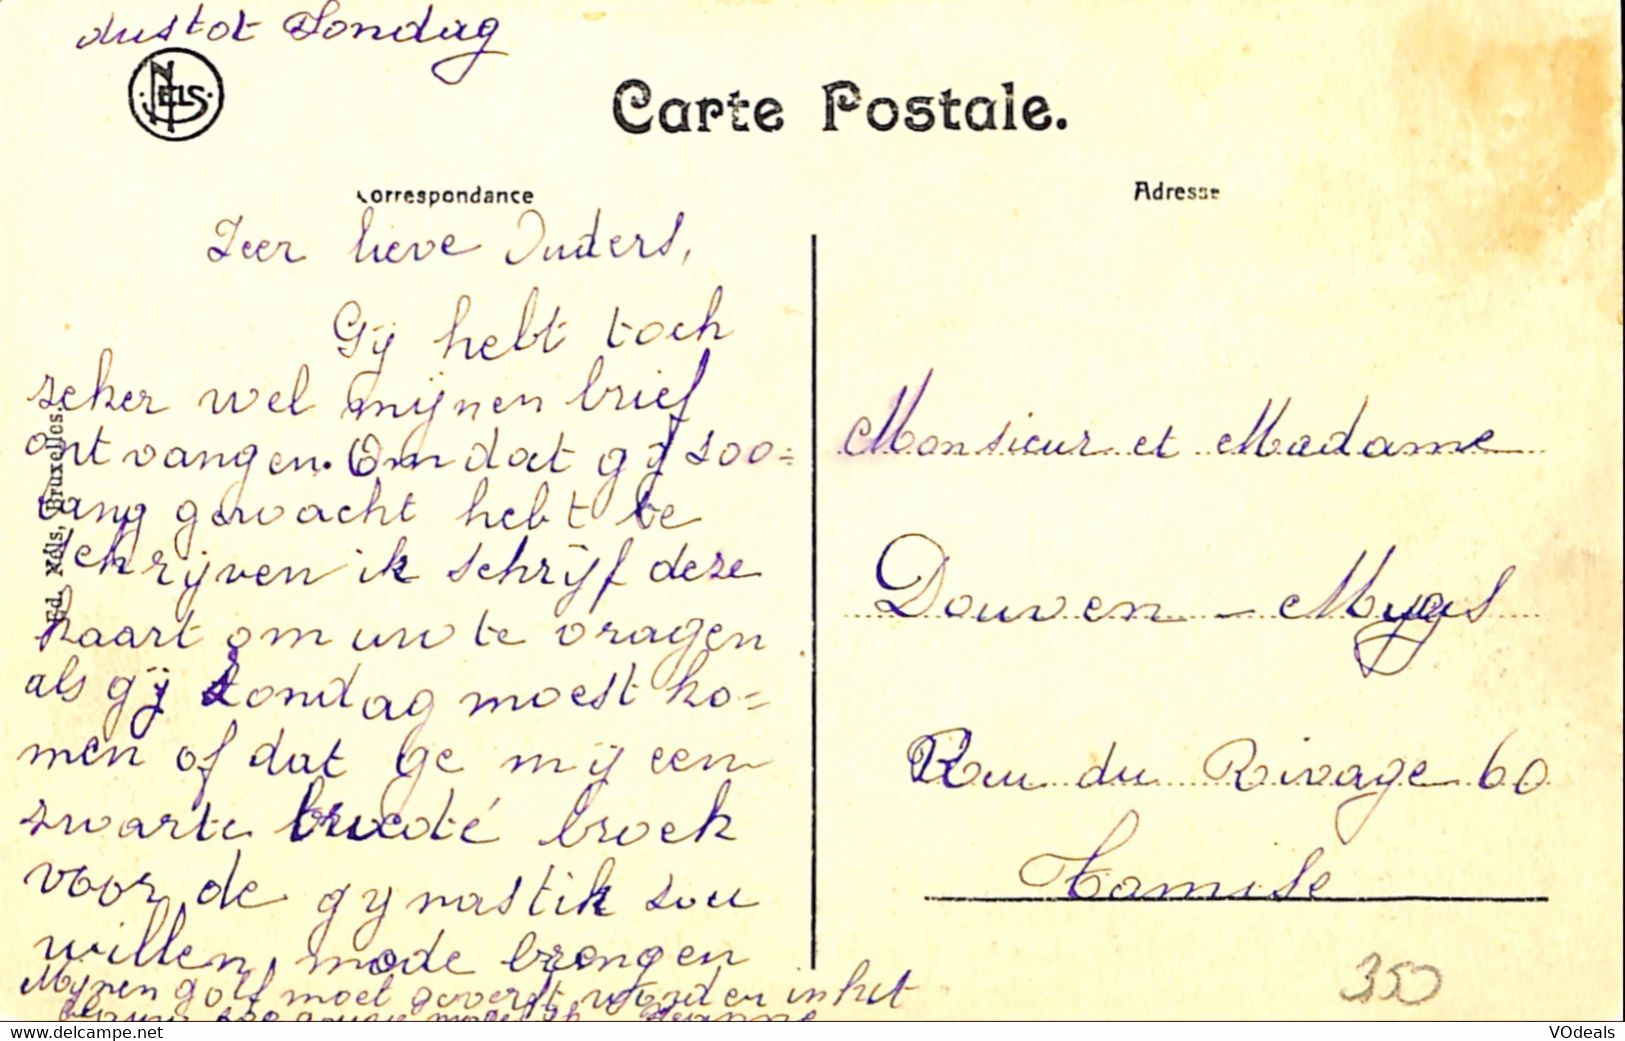 dus tot Sondag
NELS
Carte Postale.
Correspondance
Adresse
Zeer lieve Ouders,
Gij hebt toch
seker wel mijnen brief
ontvangen. Omdat gij soo=
lang gewacht hebt te
schrijven ik schrijf deze
kaart om uw te vragen
als gij Zondag moest ko=
men of dat ge mij een
zwarte broek
voor de gynastik sou
willen mede brengen
Mijnen golf moet geverft worden in het
Ed. Nels, Bruxelles.
Monsieur et Madame
Douven – Muys
Rue du Rivage 60
Tamise
350
www.delcampe.net
VOdeals